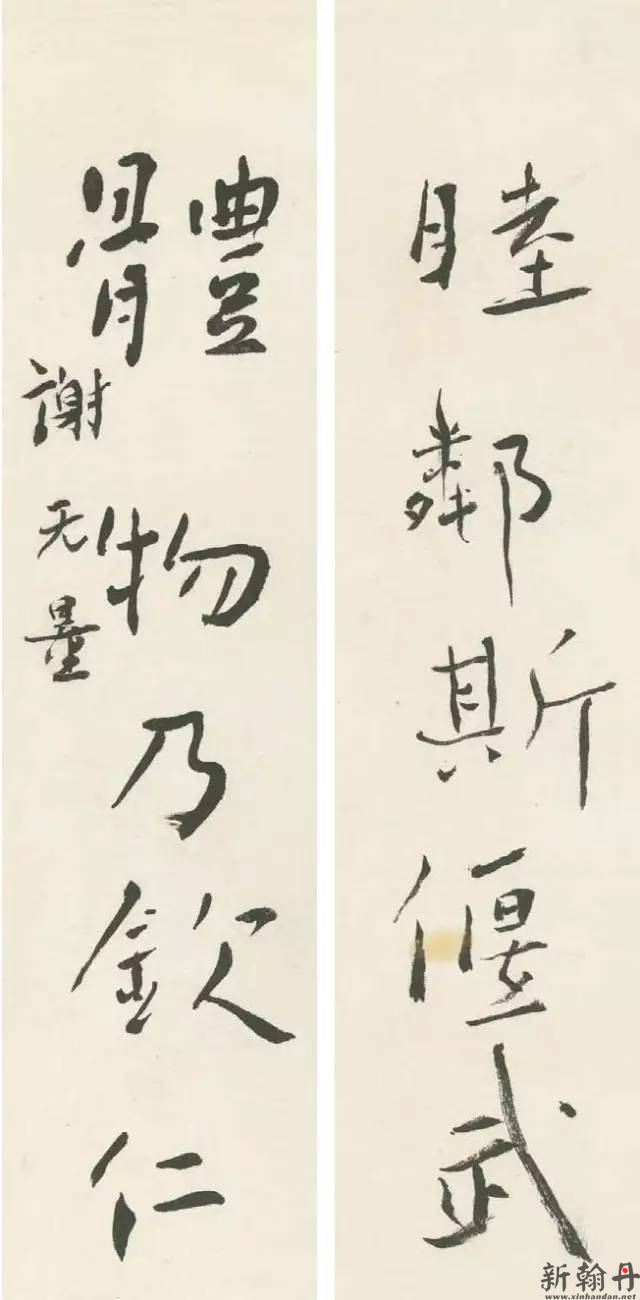 睦鄰斯偃武
體物乃欽仁
謝无量
新翰丹
www.xinhandan.net